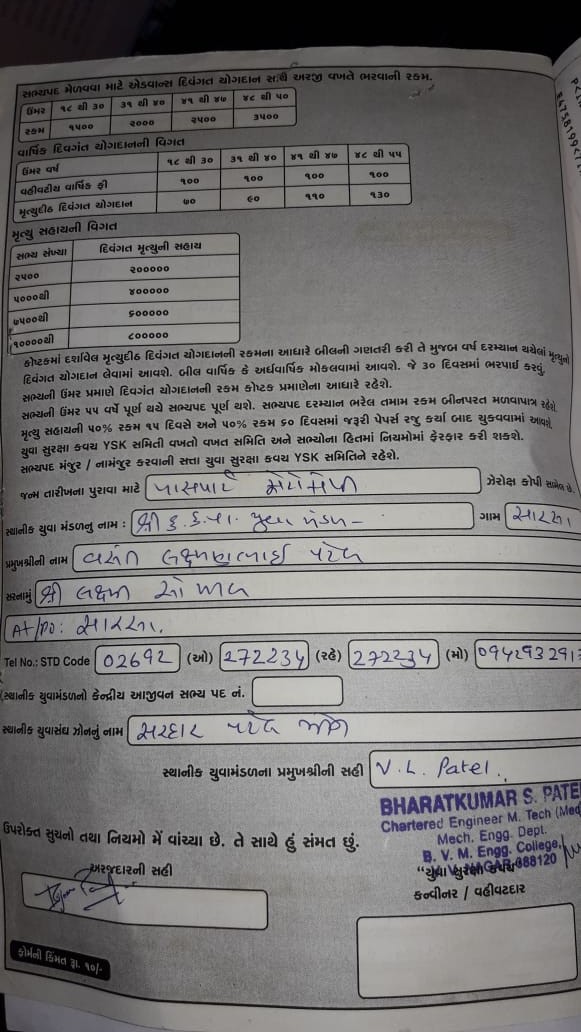 સભ્યપદ મેળવવા માટે એડવાન્સ દિવંગત યોગદાન સાથે અરજી વખતે ભરવાની રકમ.
ઉંમર ૧૮ થી ૩૦ ૩૧ થી ૪૦ ૪૧ થી ૪૭ ૪૮ થી ૫૦
રકમ ૧૫૦૦ ૨૦૦૦ ૨૫૦૦ ૩૫૦૦
વાર્ષિક દિવગંત યોગદાનની વિગત
ઉંમર વર્ષ ૧૮ થી ૩૦ ૩૧ થી ૪૦ ૪૧ થી ૪૭ ૪૮ થી ૫૫
વહીવટીય વાર્ષિક ફી ૧૦૦ ૧૦૦ ૧૦૦ ૧૦૦
મૃત્યુદીઠ દિવંગત યોગદાન ૭૦ ૯૦ ૧૧૦ ૧૩૦
મૃત્યુ સહાયની વિગત
સભ્ય સંખ્યા દિવંગત મૃત્યુની સહાય
૨૫૦૦ ૨૦૦૦૦૦
૫૦૦૦થી ૪૦૦૦૦૦
૭૫૦૦થી ૬૦૦૦૦૦
૧૦૦૦૦થી ૮૦૦૦૦૦
કોષ્ટકમાં દર્શાવેલ મૃત્યુદીઠ દિવંગત યોગદાનની રકમના આધારે બીલની ગણતરી કરી તે મુજબ વર્ષ દરમ્યાન થયેલાં મૃત્યુનો
દિવંગત યોગદાન લેવામાં આવશે. બીલ વાર્ષિક કે અર્ધવાર્ષિક મોકલવામાં આવશે. જે ૩૦ દિવસમાં ભરપાઈ કરવું.
સભ્યની ઉંમર પ્રમાણે દિવગંત યોગદાનની રકમ કોષ્ટક પ્રમાણેના આધારે રહેશે.
સભ્યની ઉંમર ૫૫ વર્ષે પૂર્ણ થયે સભ્યપદ પૂર્ણ થશે. સભ્યપદ દરમ્યાન ભરેલ તમામ રકમ બીનપરત મળવાપાત્ર રહેશે.
મૃત્યુ સહાયની ૫૦% રકમ ૧૫ દિવસે અને ૫૦% રકમ ૬૦ દિવસમાં જરૂરી પેપર્સ રજુ કર્યા બાદ ચુકવવામાં આવશે.
યુવા સુરક્ષા કવચ YSK સમિતી વખતો વખત સમિતિ અને સભ્યોના હિતમાં નિયમોમાં ફેરફાર કરી શકશે.
સભ્યપદ મંજુર / નામંજુર કરવાની સત્તા યુવા સુરક્ષા કવચ YSK સમિતિને રહેશે.
જન્મ તારીખના પુરાવા માટે પાસપાર્ટ ઝેરોક્ષ કોપી સામેલ છે.
સ્થાનીક યુવા મંડળનું નામ : શ્રી ક. ક. પા. યુવા મંડળ - ગામ સારસા
પ્રમુખશ્રીની નામ વસંત લક્ષ્મણભાઈ પટેલ
સરનામું શ્રી લક્ષ્મ સો મીલ
At/po: સારસા.
Tel No.: STD Code 02692 (ઓ) 272234 (રહે) 272234 (મો)
સ્થાનીક યુવામંડળનો કેન્દ્રીય આજીવન સભ્ય પદ નં.
સ્થાનીક યુવાસંઘ ઝોનનું નામ સરદાર પટેલ ઝોન
સ્થાનીક યુવામંડળના પ્રમુખશ્રીની સહી V. L. Patel.
BHARATKUMAR S. PATE
Chartered Engineer M. Tech (Med
Mech. Engg. Dept.
B. V. M. Engg. College,
ઉપરોક્ત સુચનો તથા નિયમો મેં વાંચ્યા છે. તે સાથે હું સંમત છું.
V. V. NAGAR-388120
"યુવા સુરક્ષા કવચ"
અરજદારની સહી
કન્વીનર / વહીવટદાર
ફોર્મની કિંમત રૂા. ૧૦/-